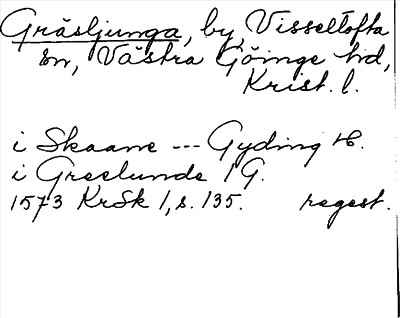 Gräsljunga, by, Visseltofta
sn, Västra Göinge hd,
Krist. l.
i Skaane --- Gyding H.
i Greelunde 1 G.
1573 KrSk 1, s. 135. regest.